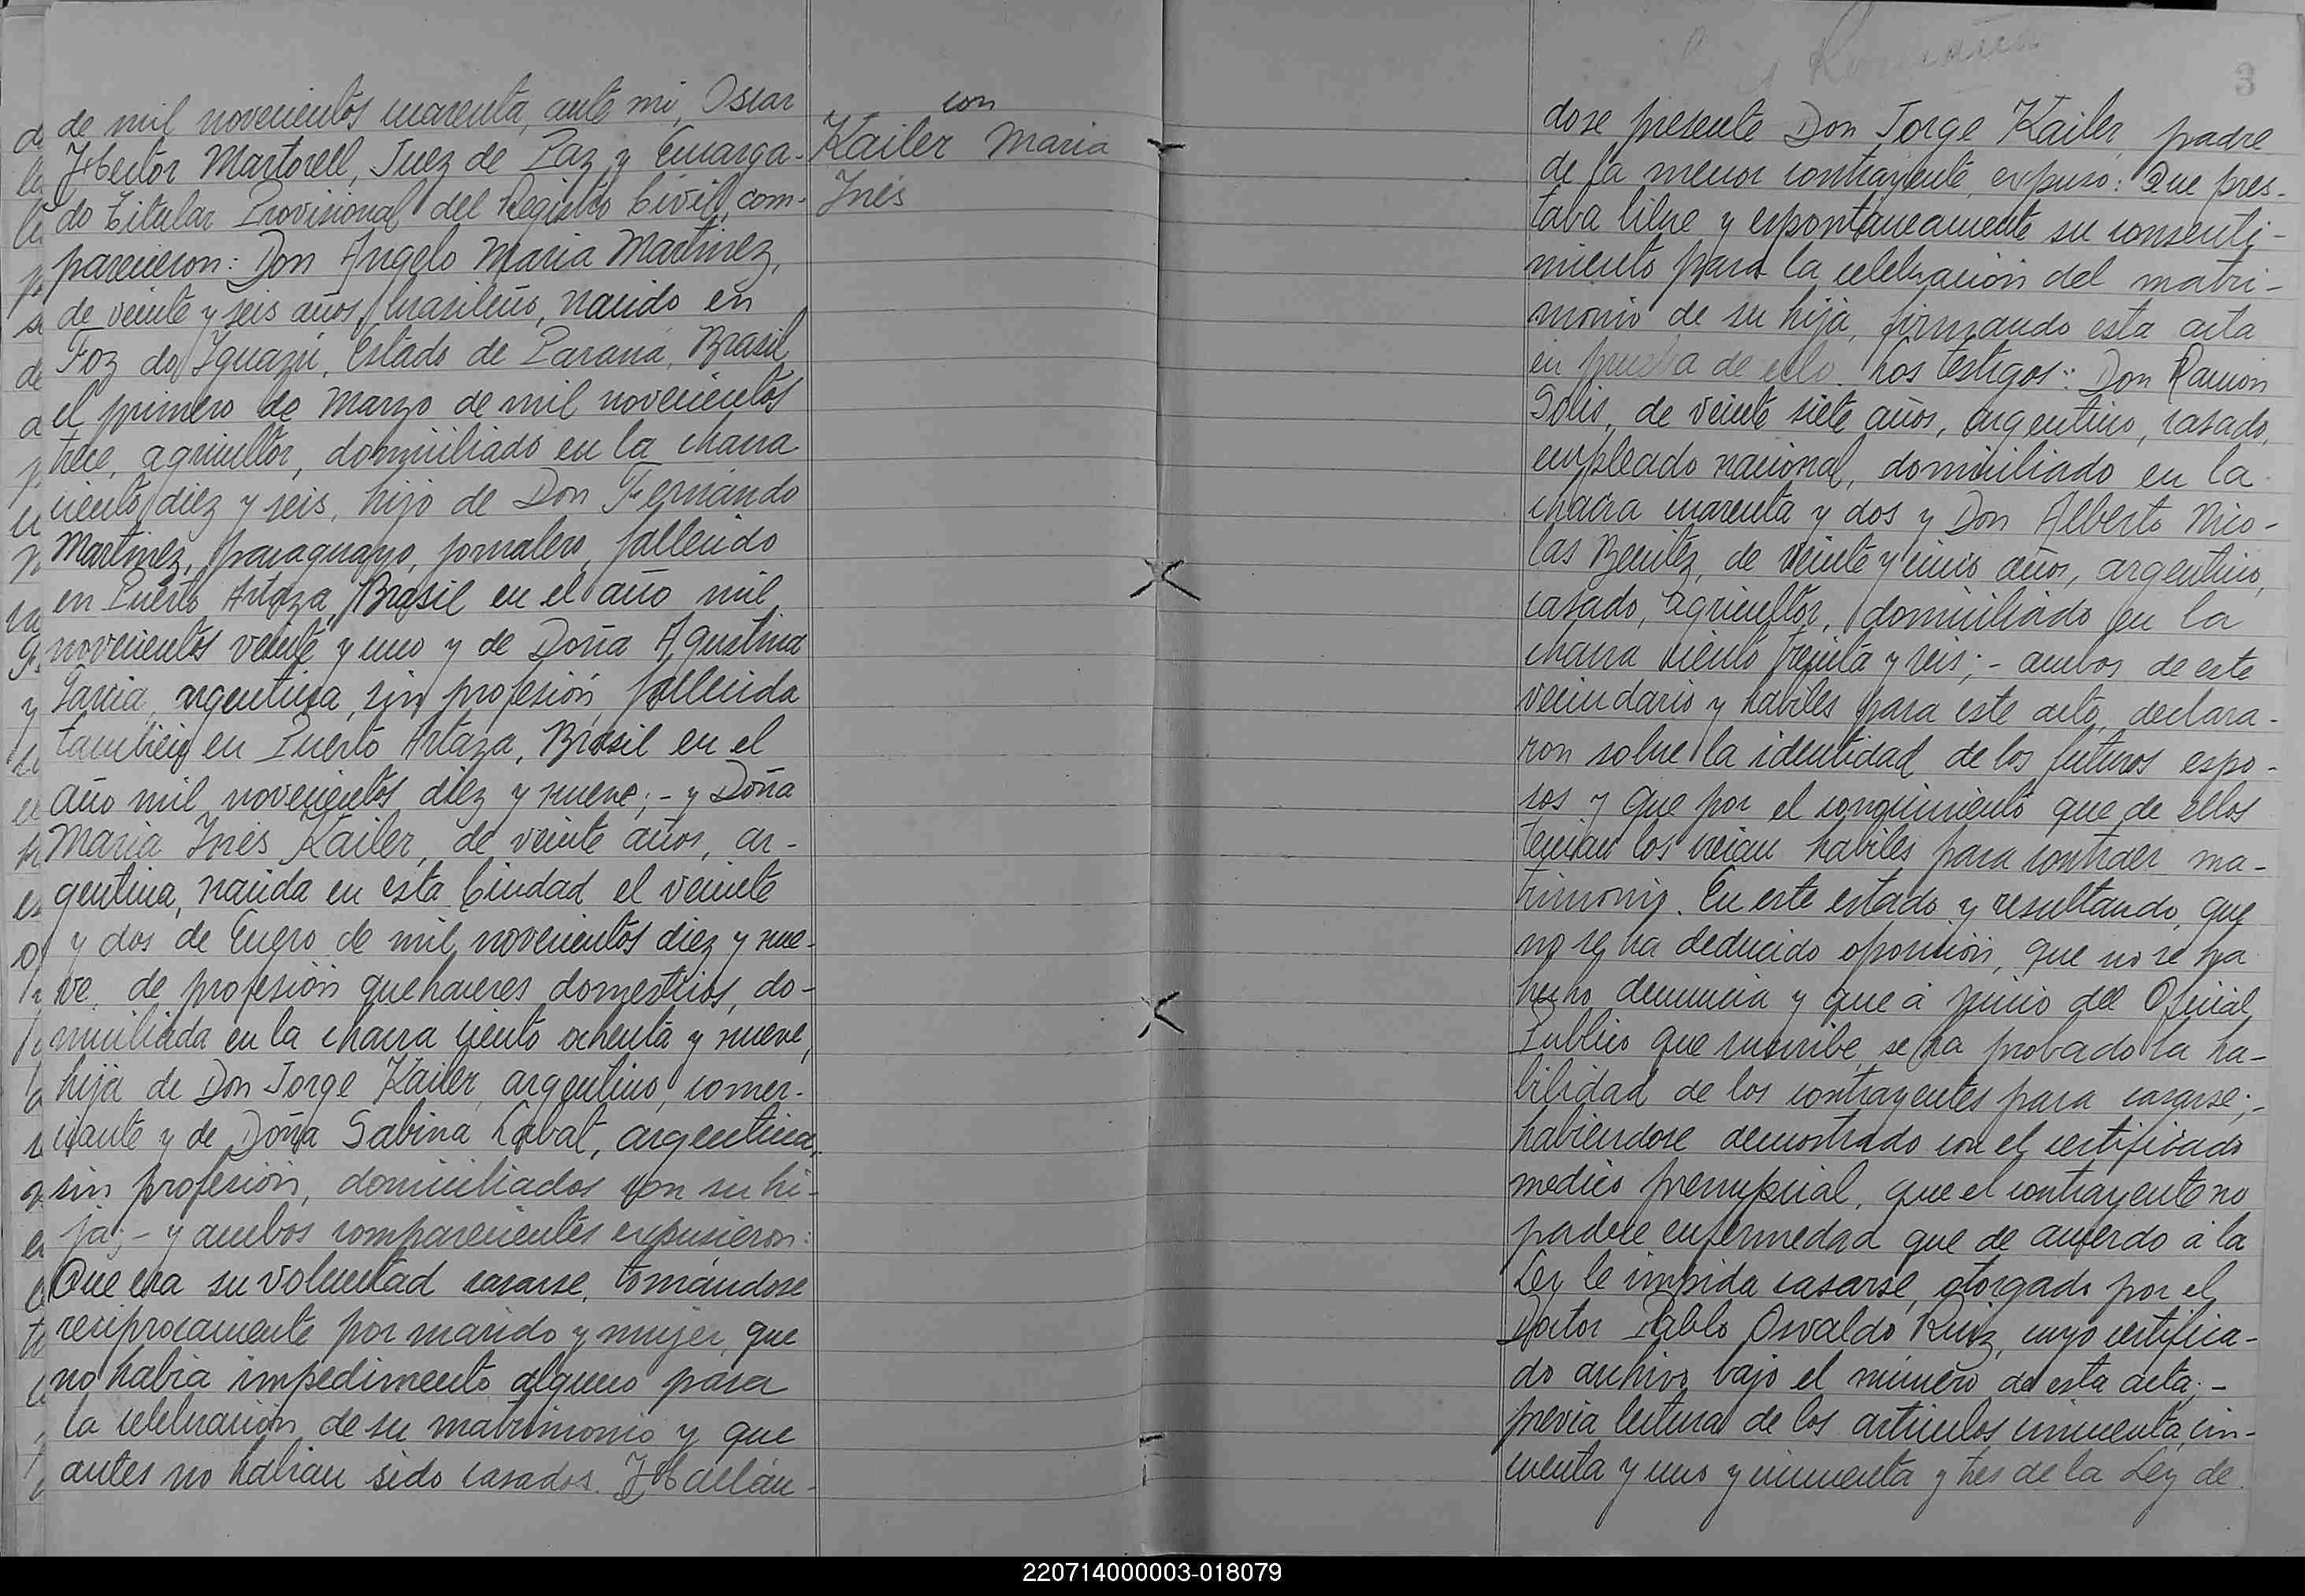 de mil novecientos cuarenta, ante mi, Oscar
Hector Martorell, Juez de Paz y Encarga-
do Titular Provisional del Registro Civil, com-
parecieron: Don Angelo Maria Martinez,
de veinte y seis años, brasileño, nacido en
Foz do Iguazú, Estado de Paraná, Brasil
el primero de Marzo de mil novecientos
trece, agricultor, domiciliado en la chacra
ciento diez y seis, hijo de Don Fernando
Martinez, paraguayo, jornalero, fallecido
en Puerto Artaza, Brasil en el año mil
novecientos veinte y uno y de Doña Agustina
Garcia, argentina, sin profesión, fallecida
tambien en Puerto Artaza, Brasil en el
año mil novecientos diez y nueve; - y Doña
Maria Inés Kailer, de veinte años, ar-
gentina, nacida en esta Ciudad el veinte
y dos de Enero de mil novecientos diez y nue-
ve, de profesión quehaceres domesticos, do-
miciliada en la chacra ciento ochenta y nueve,
hija de Don Jorge Kailer, argentino, comer-
ciante y de Doña Sabina Labat, argentina,
sin profesión, domiciliados con su hi-
ja; - y ambos comparecientes expusieron:
Que era su voluntad casarse, tomándose
reciprocamente por marido y mujer, que
no habia impedimento alguno para
la celebración de su matrimonio y que
antes no habian sido casados. Hallán-
con
Kailer Maria
Inés
3
dose presente Don Jorge Kailer, padre
de la menor contrayente, expuso: Que pres-
taba libre y espontáneamente su consenti-
miento para la celebración del matri-
monio de su hija, firmando esta acta
en prueba de ello. Los testigos: Don Ramón
Solis, de veinte siete años, argentino, casado,
empleado nacional, domiciliado en la
chacra cuarenta y dos y Don Alberto Nico-
las Benitez, de veinte y cinco años, argentino,
casado, agricultor, domiciliado en la
chacra ciento treinta y seis; - ambos de este
vecindario y habiles para este acto, declara-
ron sobre la identidad de los futuros espo-
sos y que por el conocimiento que de ellos
tenian los creian habiles para contraer ma-
trimonio. En este estado y resultando, que
no se ha deducido oposición, que no se ha
hecho denuncia y que á juicio del Oficial
Publico que suscribe, se ha probado la ha-
bilidad de los contrayentes para casarse; -
habiendose demostrado con el certificado
medico prenupcial, que el contrayente no
padece enfermedad que de acuerdo á la
Ley le impida casarse, otorgado por el
Doctor Pablo Osvaldo Ruiz, cuyo certifica-
do archivo bajo el número de esta acta; -
previa lectura de los articulos cincuenta, cin-
cuenta y uno y cincuenta y tres de la Ley de
220714000003-018079